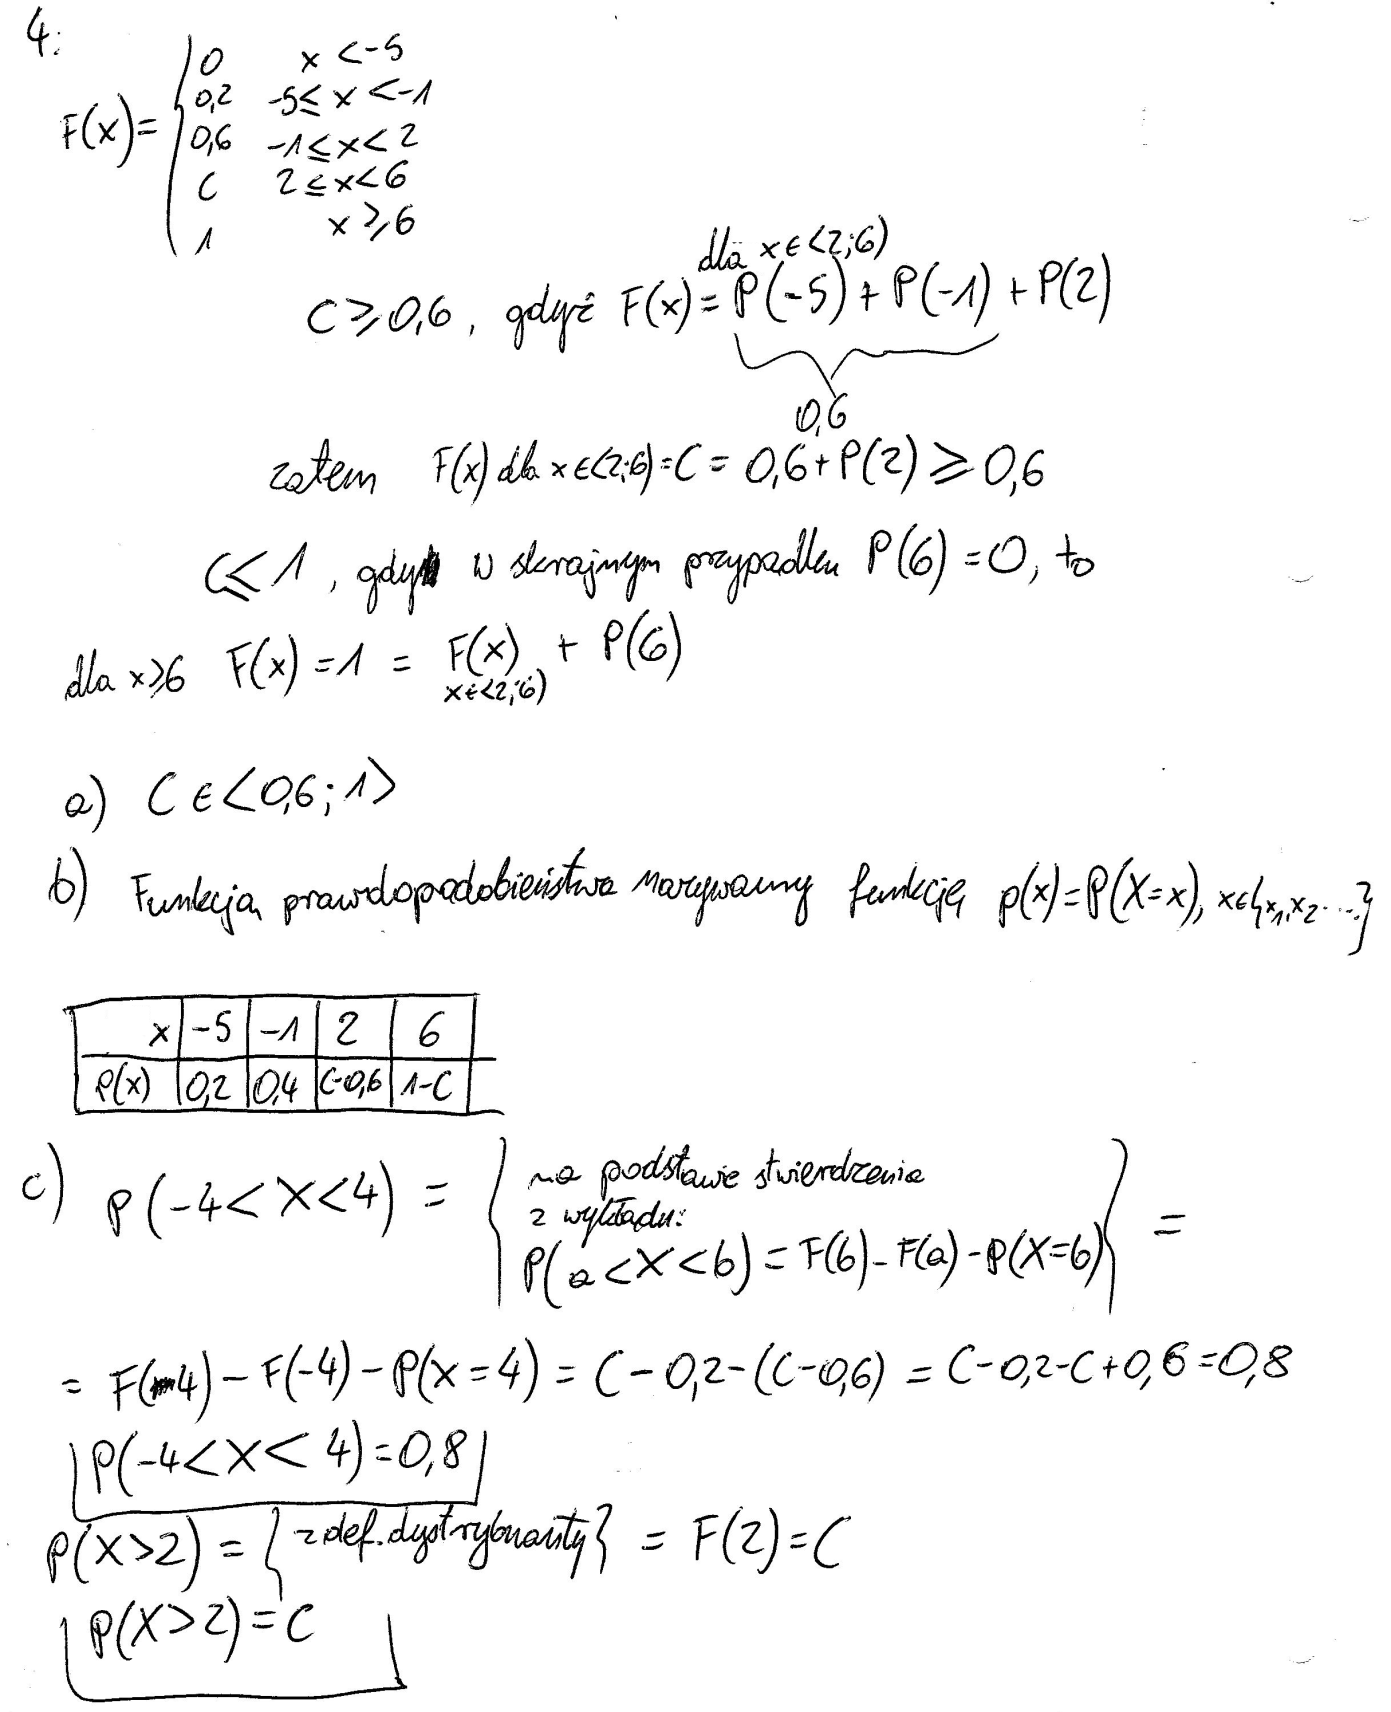 4.
F(x)= { 0 x < -5
0,2 -5 ≤ x < -1
0,6 -1 ≤ x < 2
C 2 ≤ x < 6
1 x ≥ 6
dla x∈<2;6)
C ≥ 0,6, gdyż F(x) = P(-5) + P(-1) + P(2)
0,6
zatem F(x) dla x∈<2;6) = C = 0,6 + P(2) ≥ 0,6
C ≤ 1, gdy w skrajnym przypadku P(6) = 0, to
dla x≥6 F(x) = 1 = F(x) + P(6)
x∈<2;6)
a) C ∈ <0,6; 1>
b) Funkcją prawdopodobieństwa nazywamy funkcję p(x) = P(X=x), x∈{x₁, x₂ ....}
x | -5 | -1 | 2 | 6
P(x) | 0,2 | 0,4 | C-0,6 | 1-C
c) P(-4 < X < 4) = { na podstawie stwierdzenia
z wykładu:
P(a < X < b) = F(b) - F(a) - P(X=b) } =
= F(4) - F(-4) - P(x=4) = C - 0,2 - (C-0,6) = C-0,2-C+0,6 = 0,8
P(-4 < X < 4) = 0,8
P(X>2) = { z def. dystrybuanty } = F(2) = C
P(X>2) = C